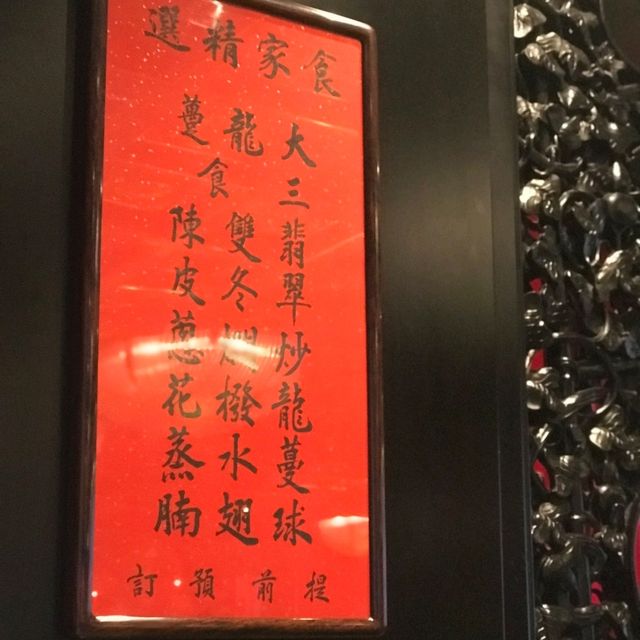 食家精選
大龍躉
三食
翡翠炒龍躉球
雙冬燜撥水翅
陳皮蔥花蒸腩
提前預訂